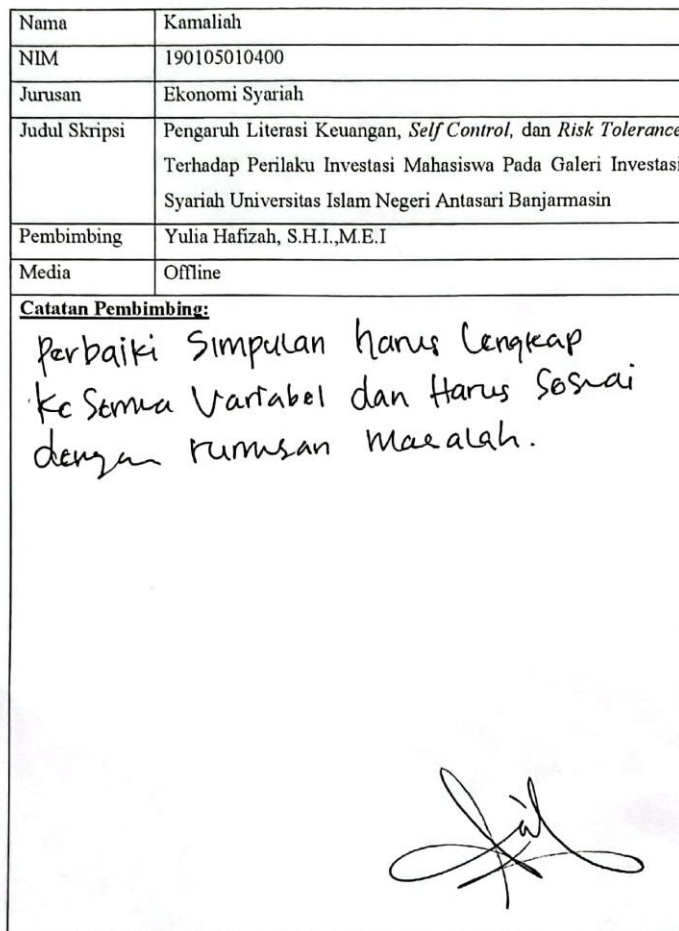 Nama Kamaliah
NIM 190105010400
Jurusan Ekonomi Syariah
Judul Skripsi Pengaruh Literasi Keuangan, Self Control, dan Risk Tolerance
Terhadap Perilaku Investasi Mahasiswa Pada Galeri Investasi
Syariah Universitas Islam Negeri Antasari Banjarmasin
Pembimbing Yulia Hafizah, S.H.I.,M.E.I
Media Offline
Catatan Pembimbing:
Perbaiki Simpulan harus Lengkap
Ke Semua Variabel dan Harus Sesuai
dengan rumusan masalah.